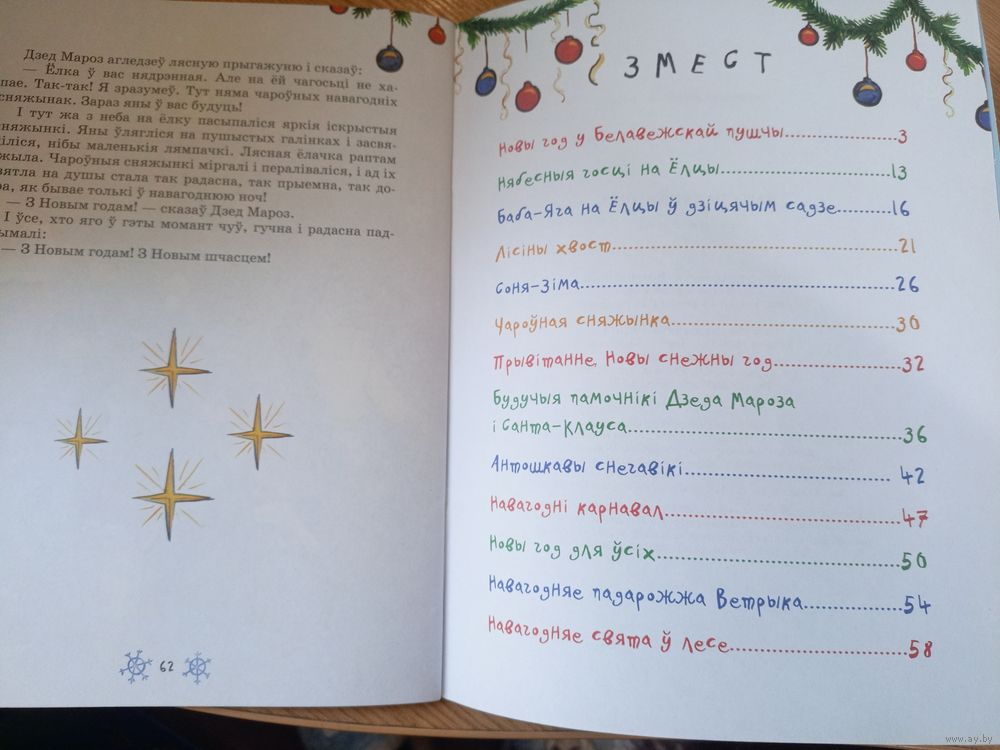 Дзед Мароз агледзеў лясную прыгажуню і сказаў:
— Ёлка ў вас нядрэнная. Але на ёй чагосьці не ха-
пае. Так-так! Я зразумеў. Тут няма чароўных навагодніх
сняжынак. Зараз яны ў вас будуць!
І тут жа з неба на ёлку пасыпаліся яркія іскрыстыя
сняжынкі. Яны ўлягліся на пушыстых галінках і засвя-
ціліся, нібы маленькія лямпачкі. Лясная ёлачка раптам
жыла. Чароўныя сняжынкі міргалі і пераліваліся, і ад іх
святла на душы стала так радасна, так прыемна, так до-
ра, як бывае толькі ў навагоднюю ноч!
— З Новым годам! — сказаў Дзед Мароз.
І ўсе, хто яго ў гэты момант чуў, гучна і радасна пад-
ымалі:
— З Новым годам! З Новым шчасцем!
62
ЗМЕСТ
Новы год у Белавежскай пушчы.....3
Нябесныя госці на Ёлцы.....13
Баба-Яга на Ёлцы ў дзіцячым садзе.....16
Лісіны хвост.....21
Соня-Зіма.....26
Чароўная сняжынка.....30
Прывітанне, Новы снежны год.....32
Будучыя памочнікі Дзеда Мароза
і Санта-Клауса.....36
Антошкавы снегавікі.....42
Навагодні карнавал.....47
Новы год для ўсіх.....50
Навагодняе падарожжа Ветрыка.....54
Навагодняе свята ў лесе.....58
www.ay.by